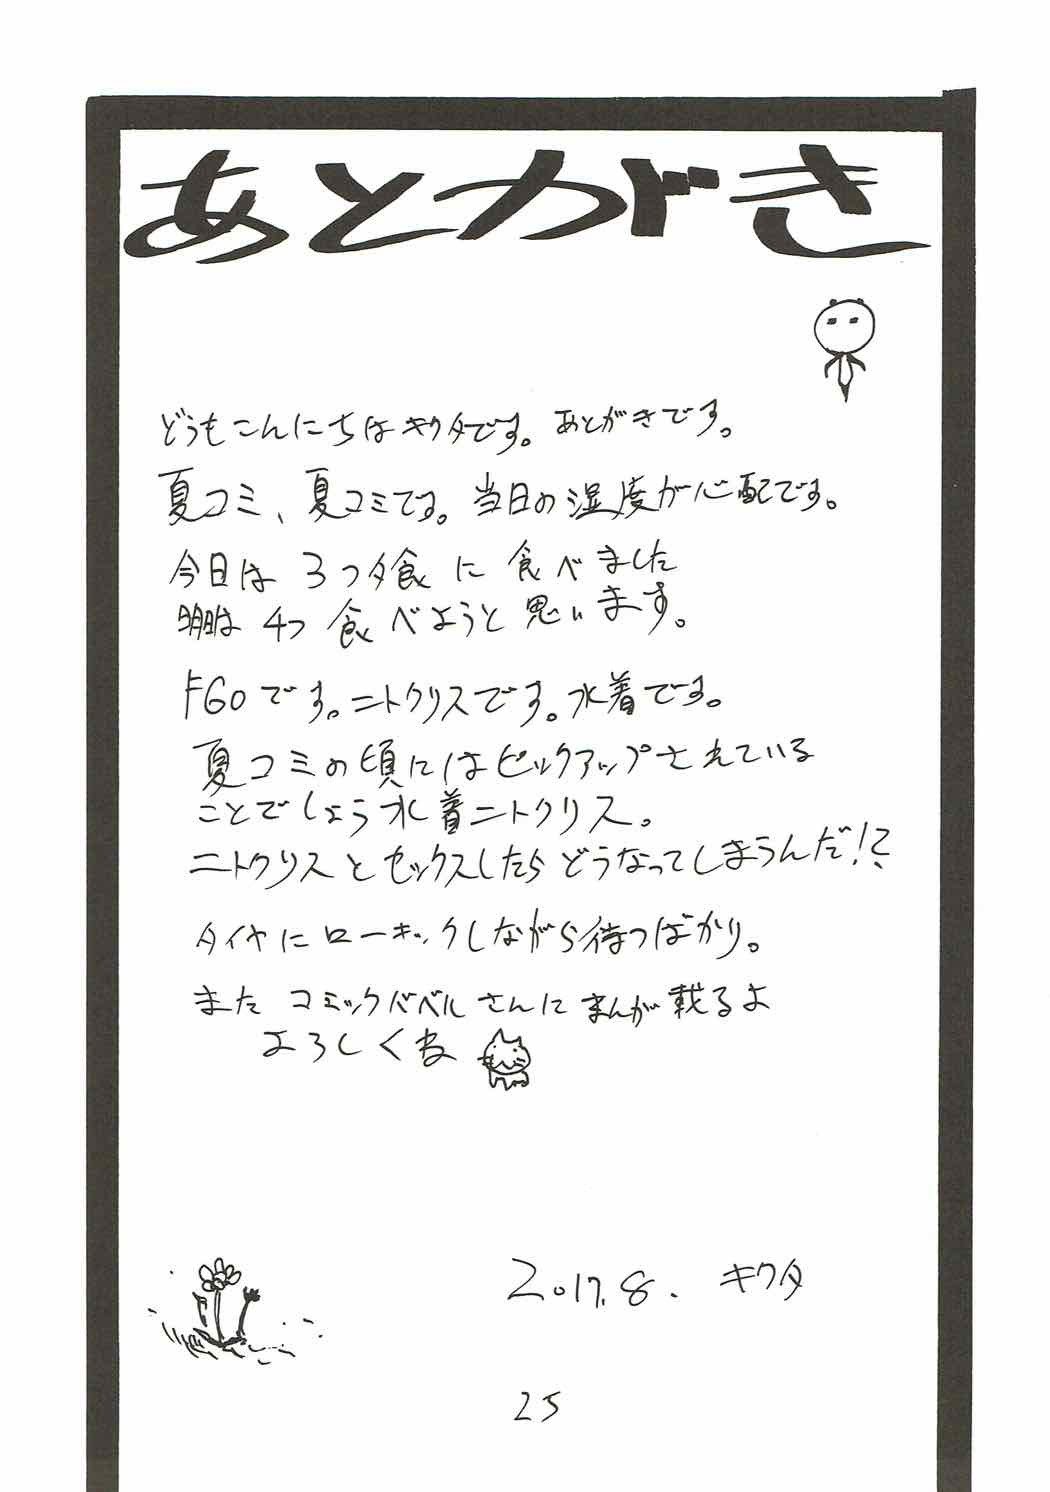 あとがき
どうもこんにちはキクタです。あとがきです。
夏コミ、夏コミです。当日の湿度が心配です。
今日は 3つ夕食に 食べました
明日は 4つ 食べようと思います。
FGOです。ニトクリスです。水着です。
夏コミの頃にはピックアップされている
ことでしょう水着ニトクリス。
ニトクリスとセックスしたらどうなってしまうんだ!?
ダイヤにローキックしながら待つばかり。
また コミックバベルさんに まんが載るよ
よろしくね
2017.8. キクタ
25